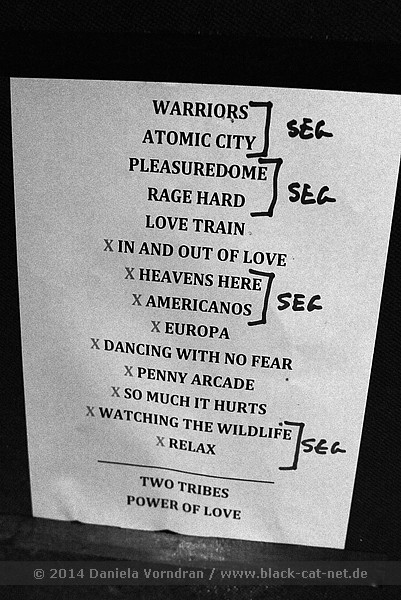 WARRIORS
ATOMIC CITY
SEG
PLEASUREDOME
RAGE HARD
SEG
LOVE TRAIN
X IN AND OUT OF LOVE
X HEAVENS HERE
X AMERICANOS
SEG
X EUROPA
X DANCING WITH NO FEAR
X PENNY ARCADE
X SO MUCH IT HURTS
X WATCHING THE WILDLIFE
X RELAX
SEG
TWO TRIBES
POWER OF LOVE
© 2014 Daniela Vorndran / www.black-cat-net.de